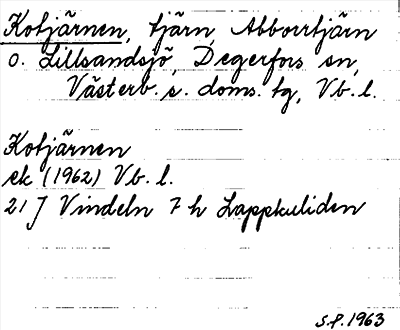 Kotjärnen, tjärn, Abborrtjärn
o. Lillsandsjö, Degerfors sn,
Västerb. s. doms. tg, Vb. l.
Kotjärnen
ek (1962) Vb. l.
21 J Vindeln 7 h Lappkuliden
S.P. 1963